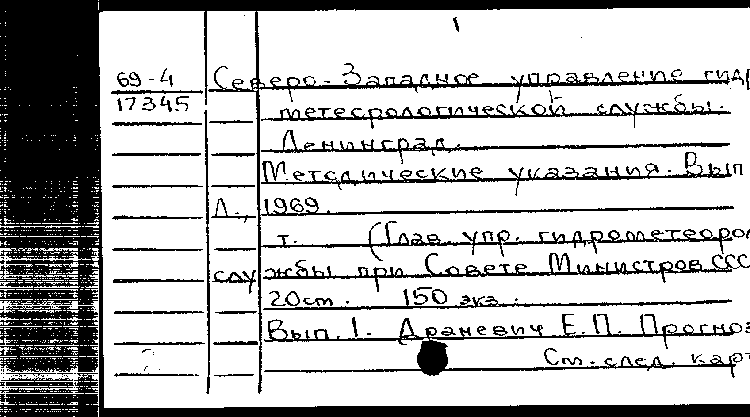 1
69-4 Северо-Западное управление гидро
17345 метеорологической службы.
Ленинград.
Методические указания. Вып
Л., 1969.
т. (Глав. упр. гидрометеорол
службы при Совете Министров СССР
20см. 150 экз.
Вып. 1. Драневич Е.П. Прогноз
См. след. карт